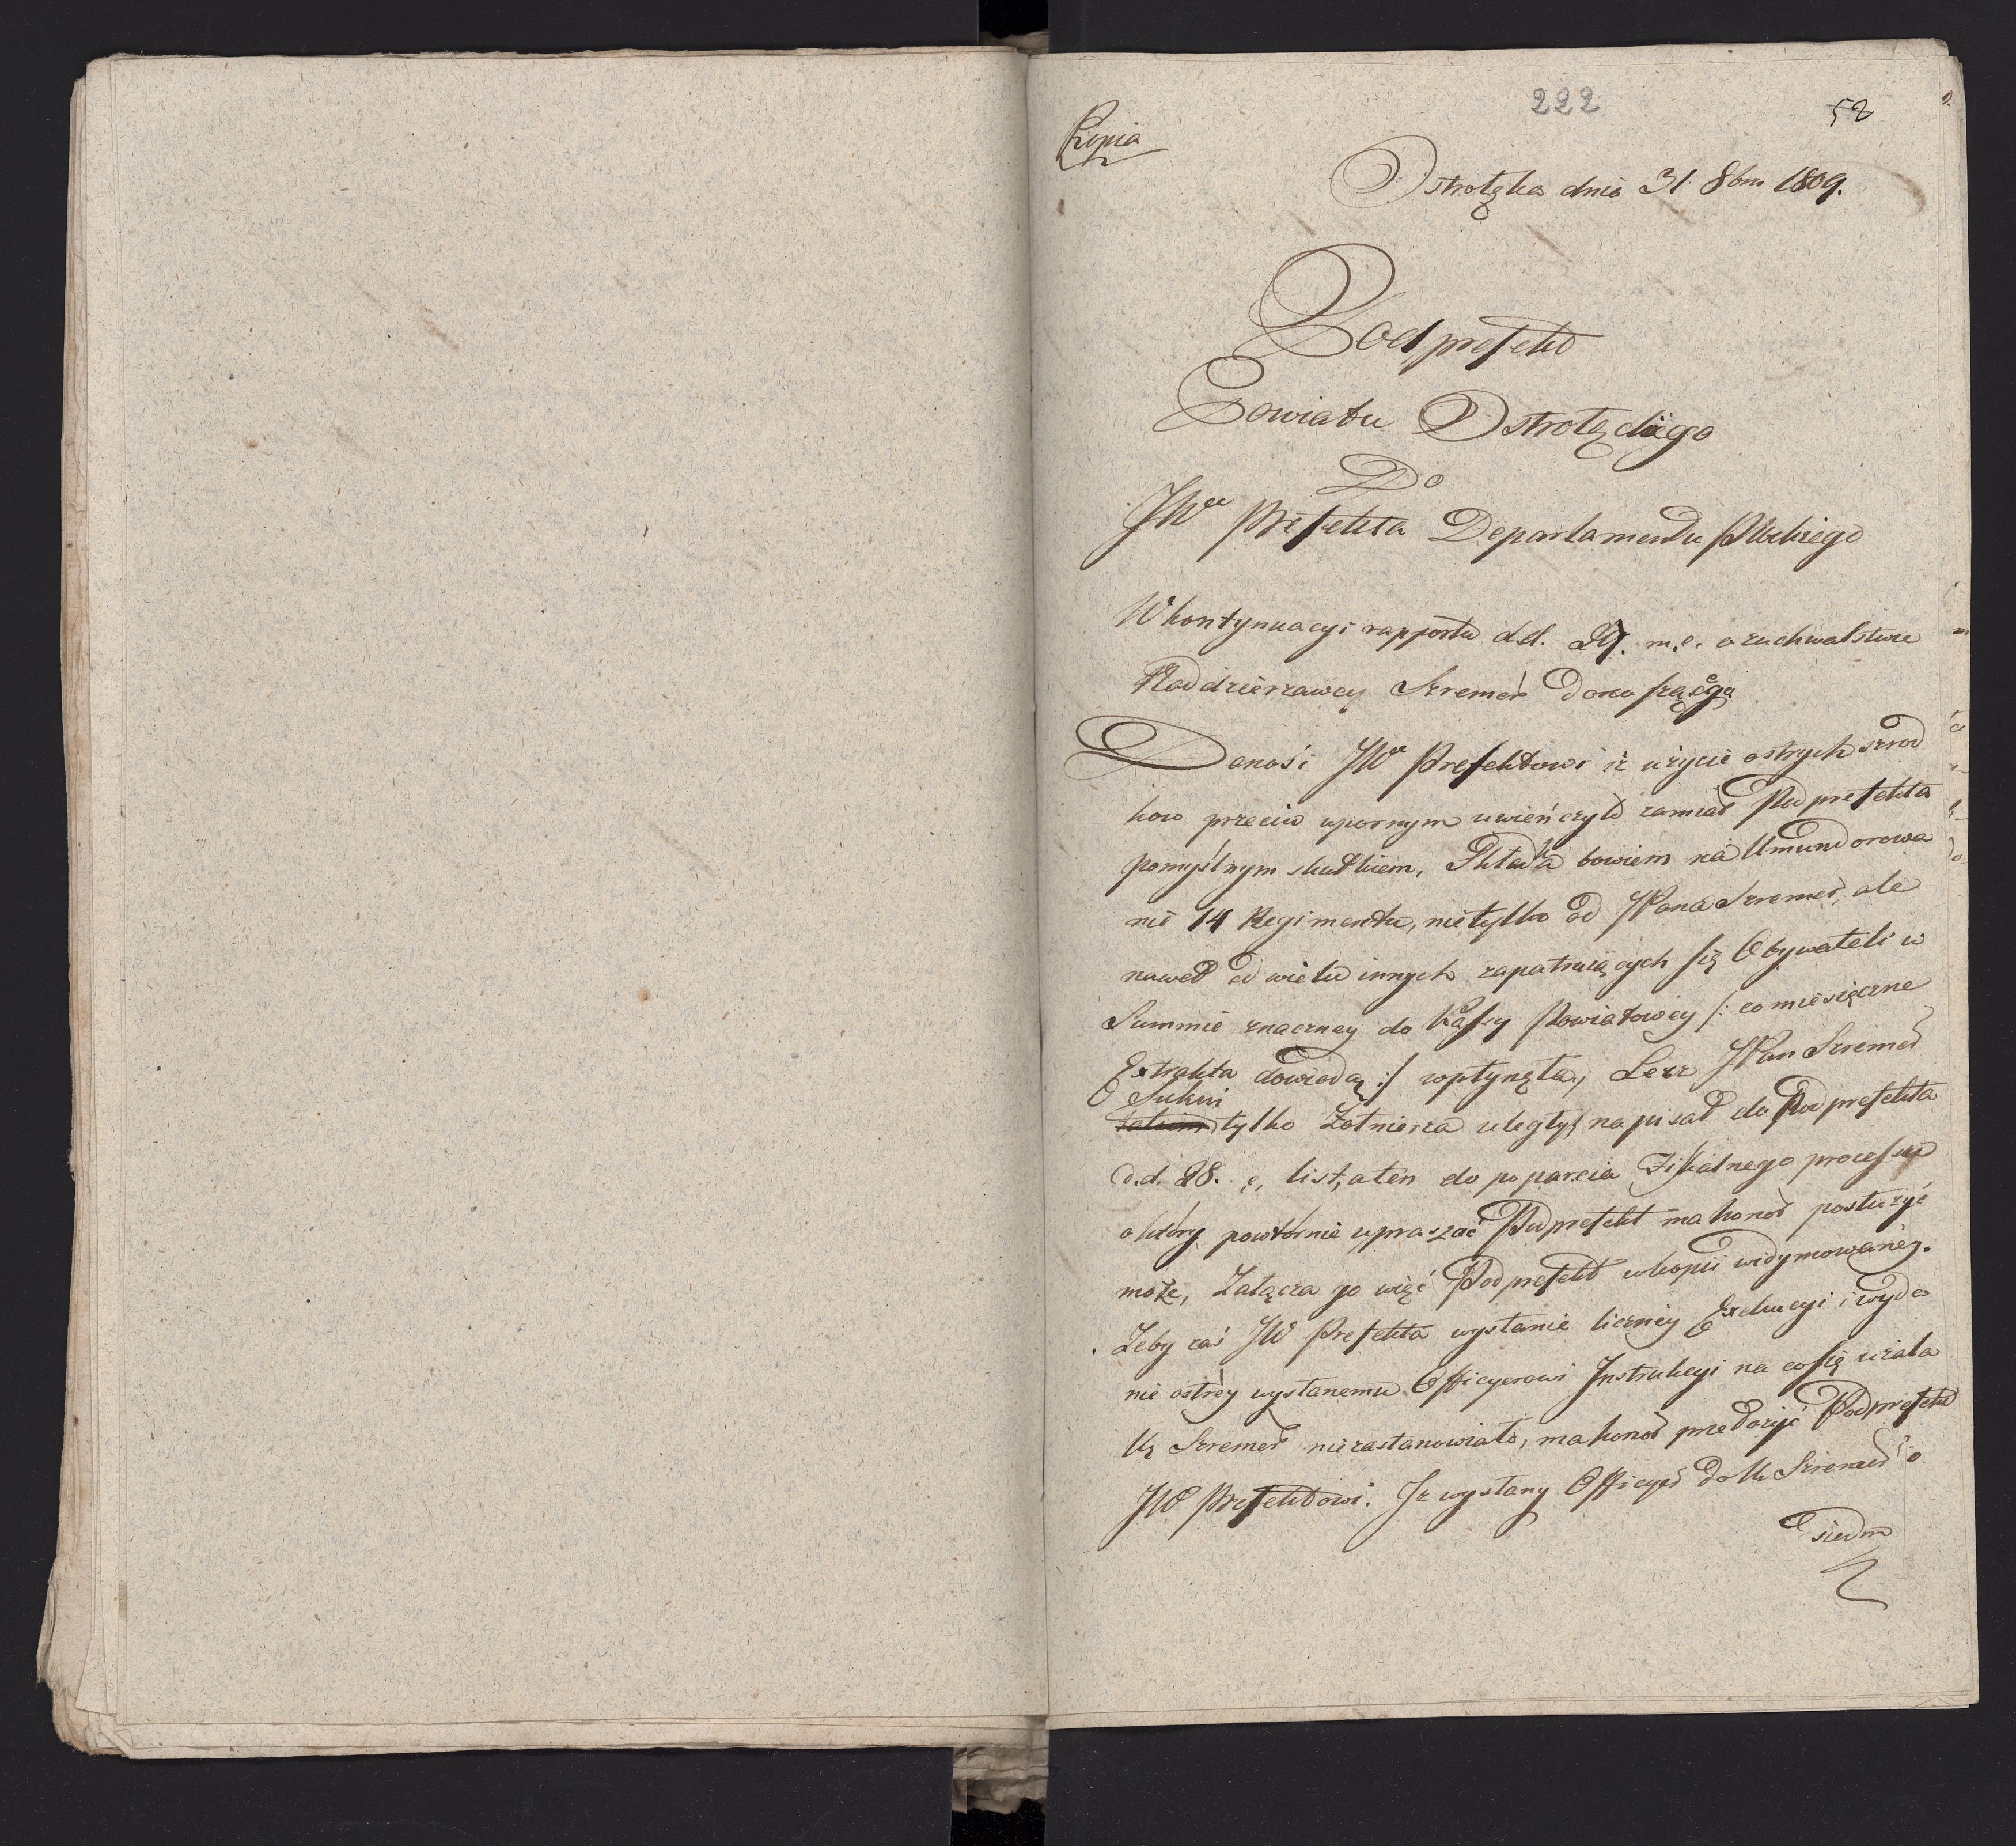 222
52
Kopia
Ostrołęka dnia 31 8bra 1809.
Podprefekt
Powiatu Ostrołęckiego
Do
JWo Prefekta Departamentu Płockiego
W kontynuacyi rapportu d.d. 29. m.e. o zuchwalstwie
Naddzierzawcy Szremer donoszącego
Donosi JWo Prefektowi iż użycie ostrych szrod
kow przeciw upornym uwieńczyło zamiar Podprefekta
pomyślnym skutkiem, Składka bowiem na Umundorowa
nie 14 Regimentu, nietylko od JPana Szremer, ale
nawet od wielu innych zapatruiących się Obywateli w
Summie znaczney do Kassy Powiatowey /: co miesięczne
Extrakta dowiodą :/ wpłynęła, Lecz JPan Szremer
Sukni
tylko Zołnierza uległy, napisał do Podprefekta
d.d. 28. e. list, a ten do poparcia Fiskalnego processu
o który powtórnie upraszać Podprefekt ma honor posłużyć
może, Załącza go więć Podprefekt w kopii widymowanéy.
Zeby zaś JW Prefekta wysłanie liczney Exekucyi i wyda
nie ostréy wysłanemu Officyerowi Instrukcyi na co się użala
Ur Szremer niezastanowiało, ma honor przełożyć Podprefekt
JW Prefektowi. Iż wysłany Officyer do Ur Szremer o
siedm